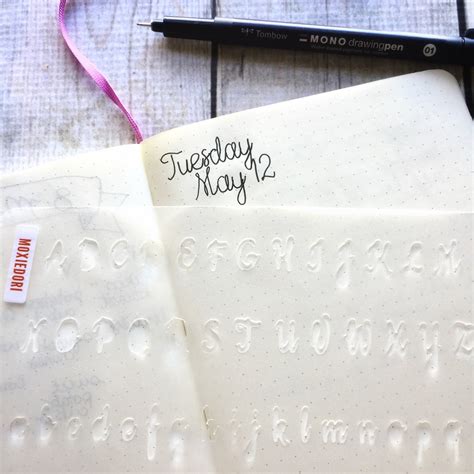 Tombow MONO drawingpen 01
Tuesday
May 12
MOXIEDORI
A B C D E F G H I J K L M
N O P Q R S T U V W X Y Z
a b c d e f g h i j k l m n o p q